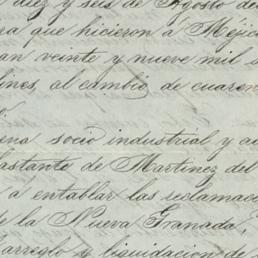 diez y seis de Agosto de
ra que hicieron a Méjic
an veinte y nueve mil s
lines, al cambio de cuaren
ena socio industrial y ac
bastante de Martinez del
a entablar las reclamac
de la Nueva Granada,
arreglo y liquidacion de